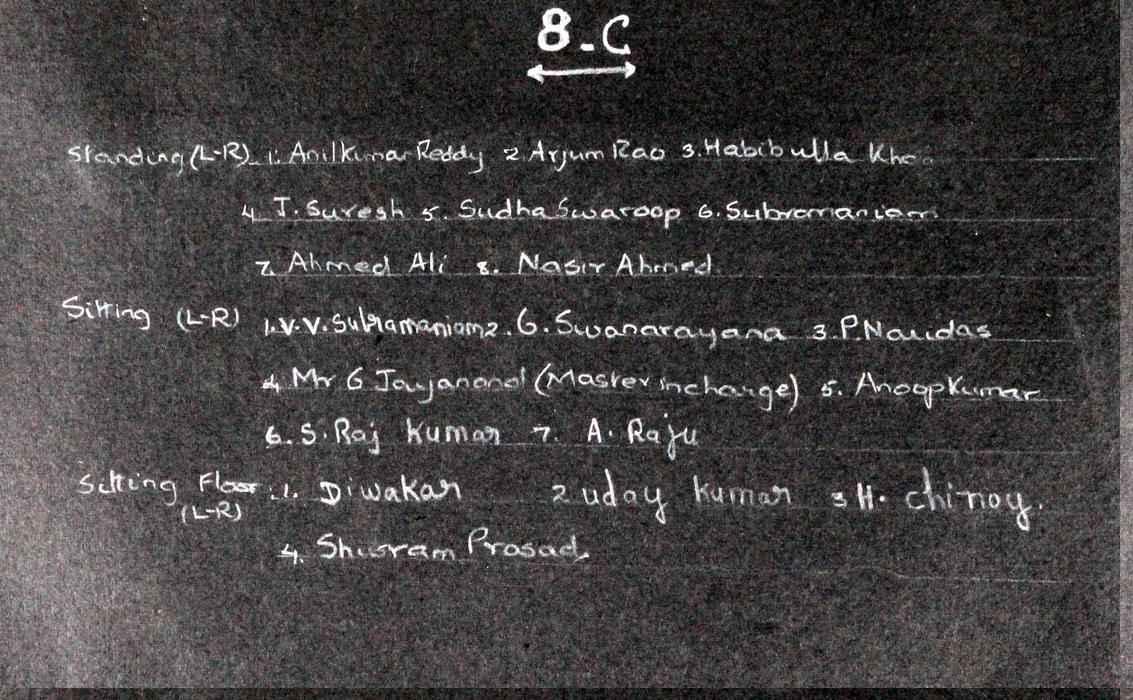 8-C
Standing (L-R) 1. Anilkumar Reddy 2. Arjum Rao 3. Habib ulla Khan
4. T. Suresh 5. Sudha Swaroop 6. Subramaniam
7. Ahmed Ali 8. Nasir Ahmed
Sitting (L-R) 1. V.V. Subramaniam 2. G. Swanarayana 3. P.
4. Mr G Jayanand (Master incharge) 5. Anoop Kumar
6. S. Raj Kumar 7. A. Raju
Sitting Floor: 1. Diwakar 2 uday Kumar 3 H. chinoy.
(L-R)
4. Prasad